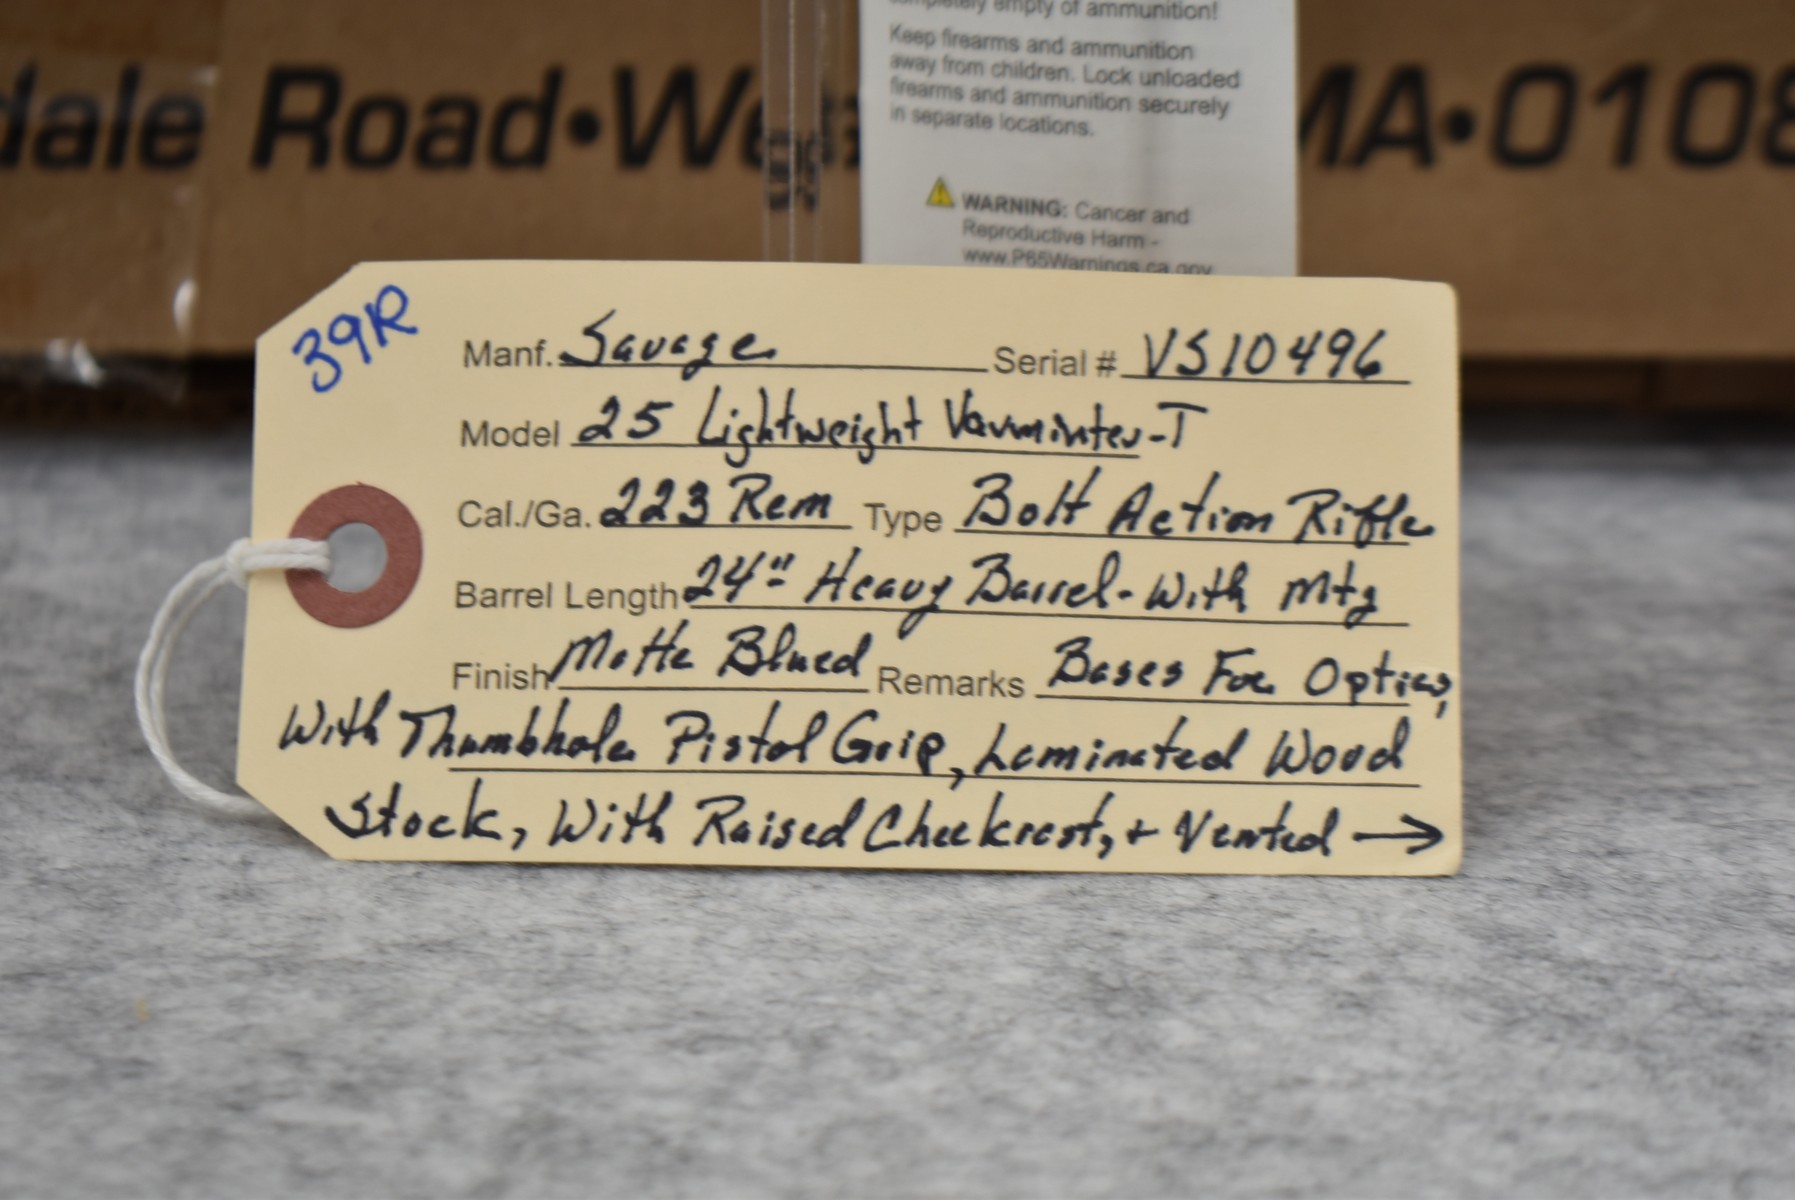 completely empty of ammunition!
Keep firearms and ammunition
away from children. Lock unloaded
firearms and ammunition securely
in separate locations.
dale Road•We MA•0108
WARNING: Cancer and
Reproductive Harm -
www.P65Warnings.ca.gov
39R
Manf. Savage Serial # VS10496
Model 25 Lightweight Varminter-T
Cal./Ga. 223 Rem Type Bolt Action Rifle
Barrel Length 24" Heavy Barrel - With Mtg
Finish Matte Blued Remarks Bases For Optics,
With Thumbhole Pistol Grip, Laminated Wood
Stock, With Raised Cheekrest, + Vented →